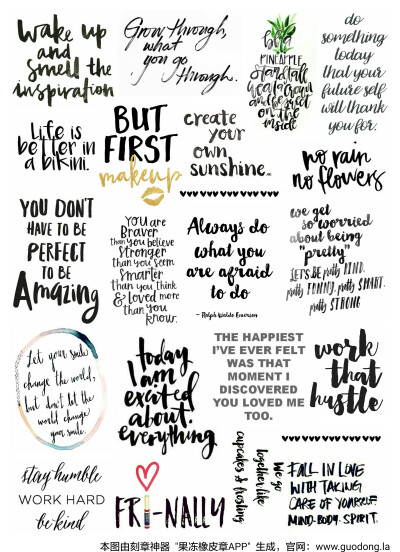 wake up
and
smell the
inspiration
Grow through,
what
you go
through.
be a
PINEAPPLE
Stand tall
wear a crown
and be sweet
on the
inside
do
something
today
that your
future self
will thank
you for.
Life is
better in
a bikini.
BUT
FIRST
makeup
create
your
own
sunshine.
no rain
no flowers
YOU DON'T
HAVE TO BE
PERFECT
TO BE
Amazing
YOU are
BRAVER
than you believe
STRONGER
than you seem
SMARTER
than you think
& LOVED more
than you
KNOW.
Always do
what you
are afraid
to do
- Ralph Waldo Emerson
we get
so worried
about being
"pretty"
LET'S BE pretty KIND.
pretty FUNNY. pretty SMART.
pretty STRONG
Let your smile
change the world,
but don't let the
world change
your smile.
today
I am
excited
about
everything
THE HAPPIEST
I'VE EVER FELT
WAS THAT
MOMENT I
DISCOVERED
YOU LOVED ME
TOO.
work
that
hustle
stay humble
WORK HARD
be kind
FRI-NALLY
we go
together like
cupcakes & frosting
FALL IN LOVE
WITH TAKING
CARE OF YOURSELF
MIND.BODY.SPIRIT.
本图由刻章神器“果冻橡皮章APP”生成，官网：www.guodong.la